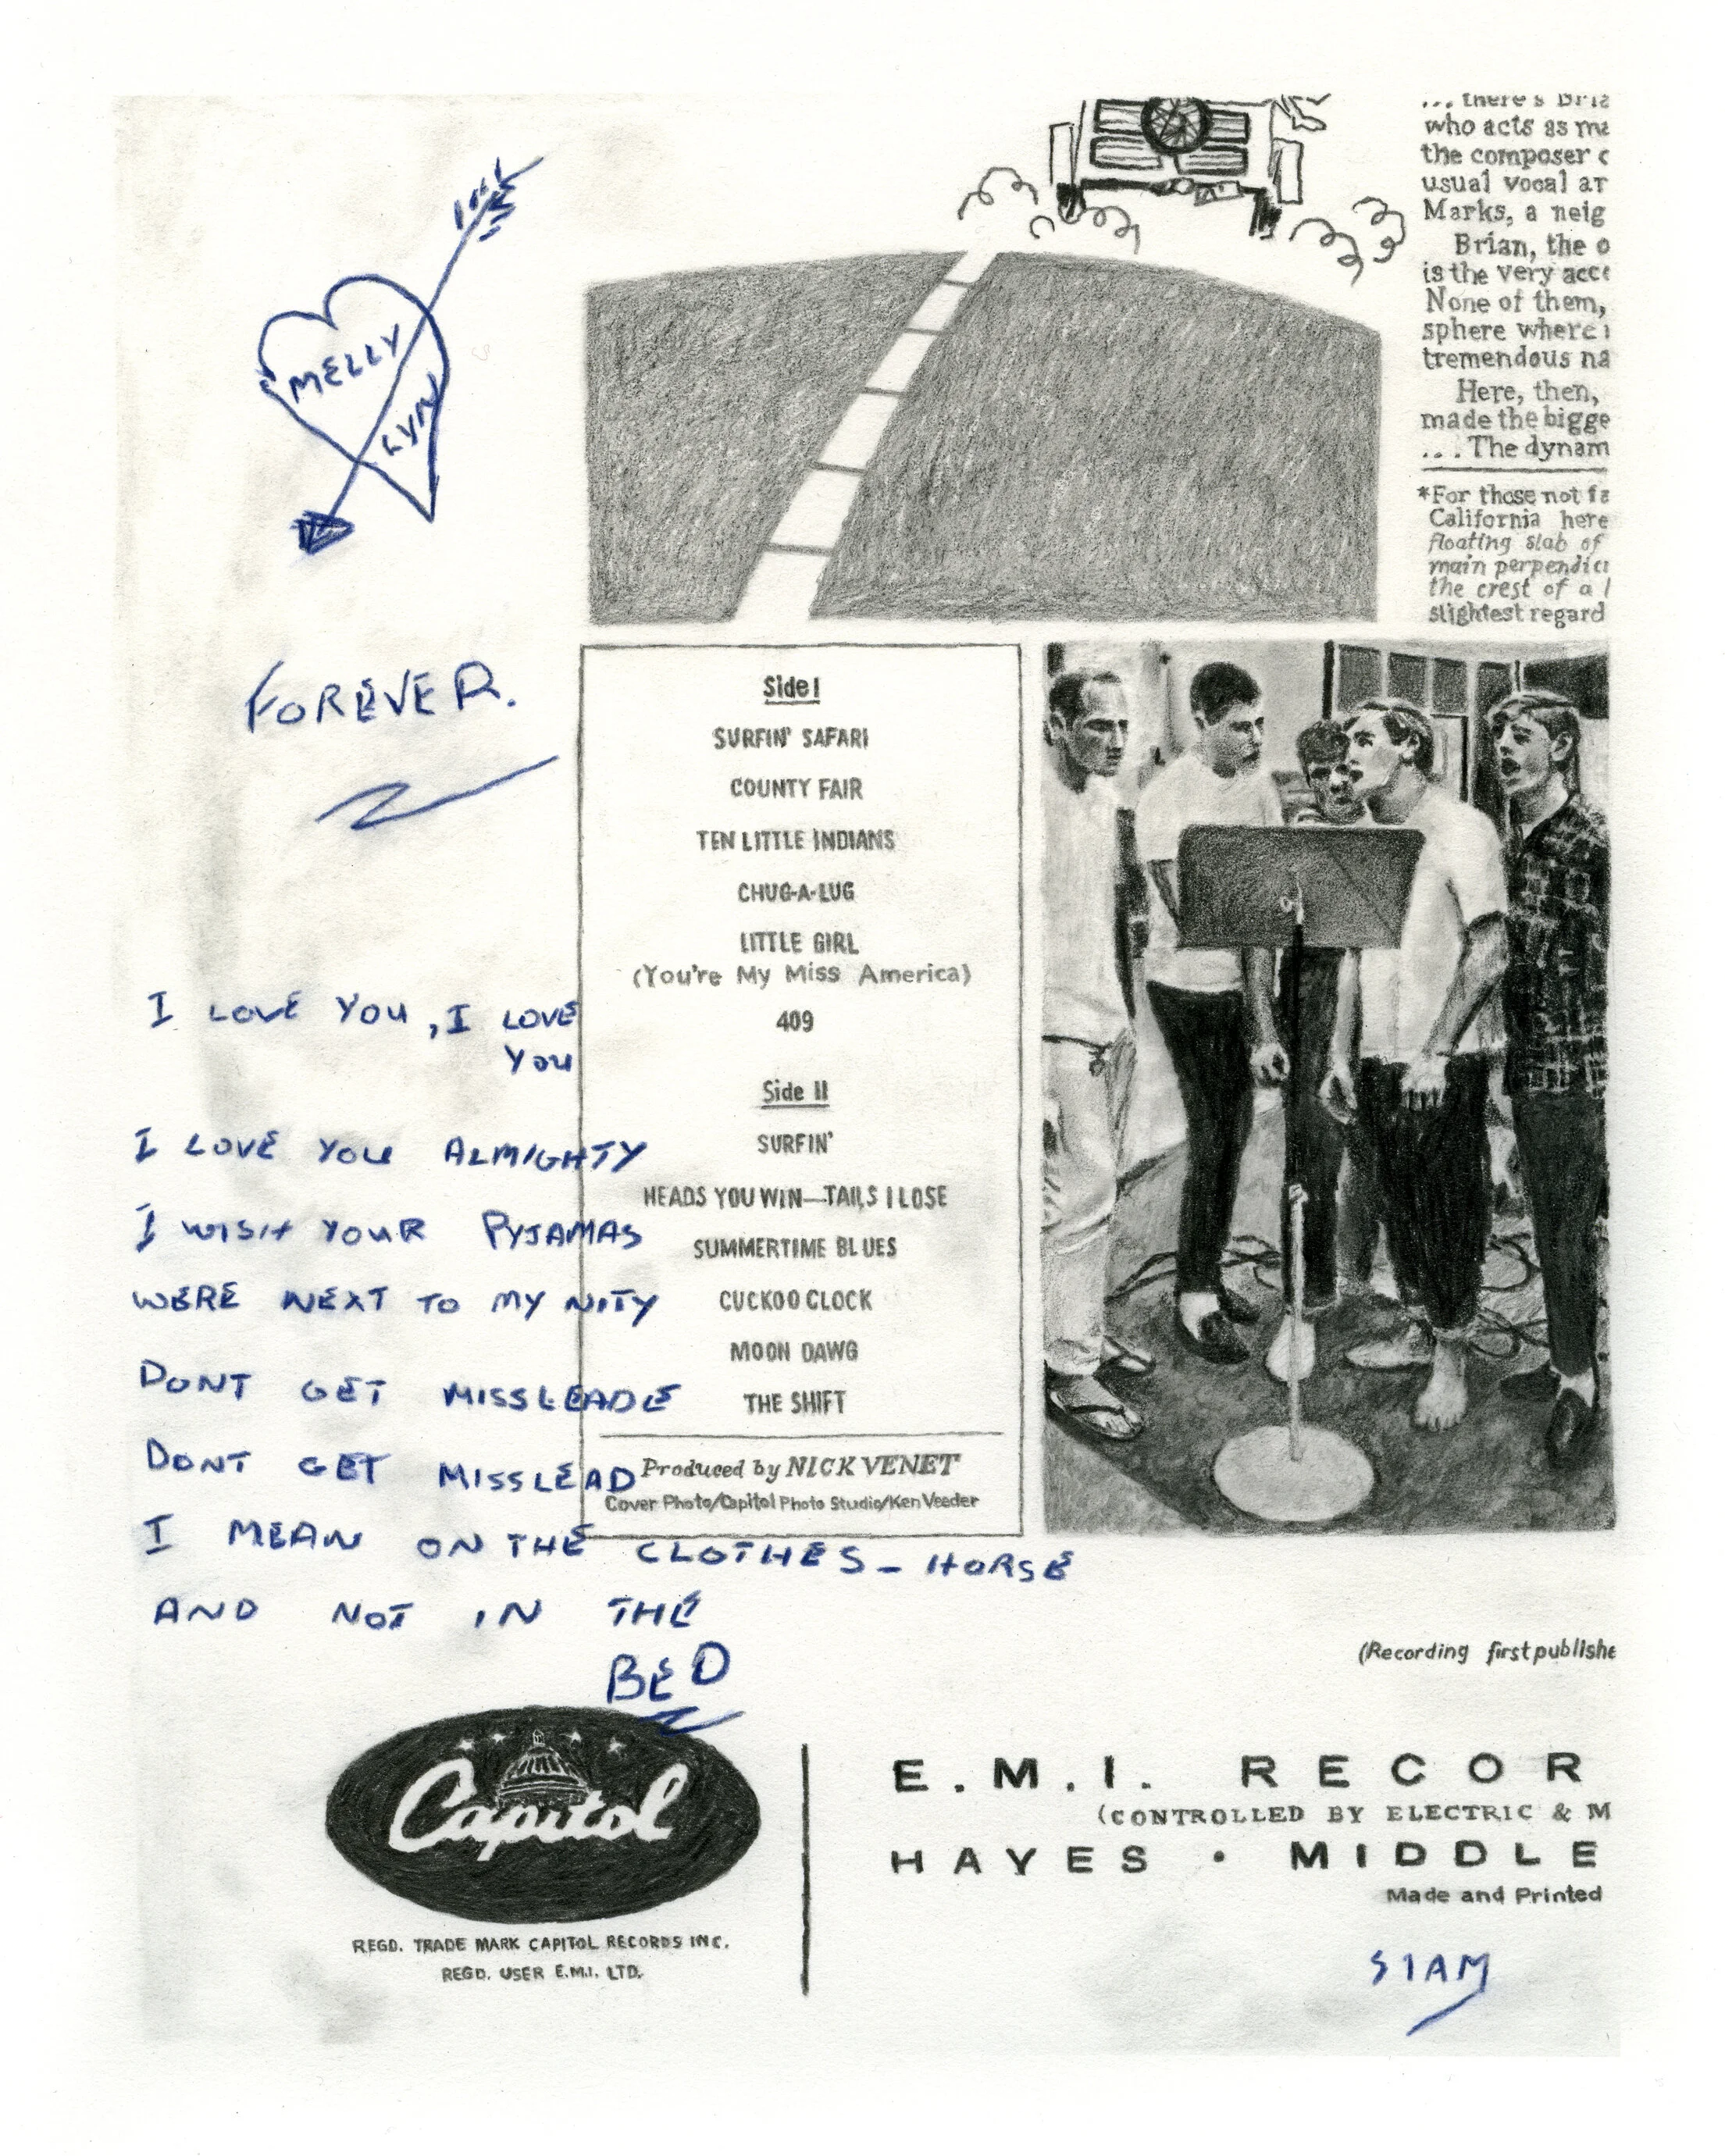 MELLY
LYN
FOREVER.
I LOVE YOU, I LOVE
YOU
I LOVE YOU ALMIGHTY
I WISH YOUR PYJAMAS
WERE NEXT TO MY NITY
DONT GET MISSLEADE
DONT GET MISSLEAD
I MEAN ON THE CLOTHES-HORSE
AND NOT IN THE
BED
... there's Bria
who acts as ma
the composer
usual vocal ar
Marks, a neig
Brian, the o
is the very acc
None of them,
sphere where
tremendous na
Here, then,
made the bigge
... The dynam
*For those not fa
California here
floating slab of
main perpendic
the crest of a
slightest regard
Side I
SURFIN' SAFARI
COUNTY FAIR
TEN LITTLE INDIANS
CHUG-A-LUG
LITTLE GIRL
(You're My Miss America)
409
Side II
SURFIN'
HEADS YOU WIN—TAILS I LOSE
SUMMERTIME BLUES
CUCKOO CLOCK
MOON DAWG
THE SHIFT
Produced by NICK VENET
Cover Photo/Capitol Photo Studio/Ken Veeder
(Recording first publishe
Capitol
REGD. TRADE MARK CAPITOL RECORDS INC.
REGD. USER E.M.I. LTD.
E.M.I. RECOR
(CONTROLLED BY ELECTRIC & M
HAYES • MIDDLE
Made and Printed
SIAM